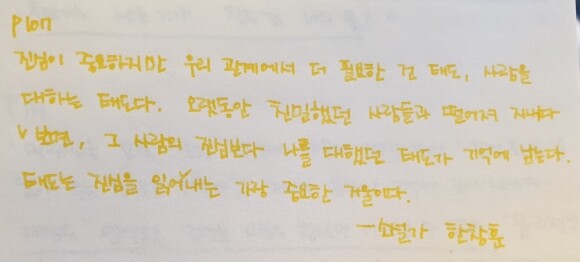 P107
진심이 중요하지만 우리 관계에서 더 필요한 건 태도, 사람을
대하는 태도다. 오랫동안 친밀했던 사람들과 떨어져 지내다
∨보면, 그 사람의 진심보다 나를 대했던 태도가 기억에 남는다.
태도는 진심을 읽어∨내는 가장 중요한 거울이다.
—소설가 한창훈